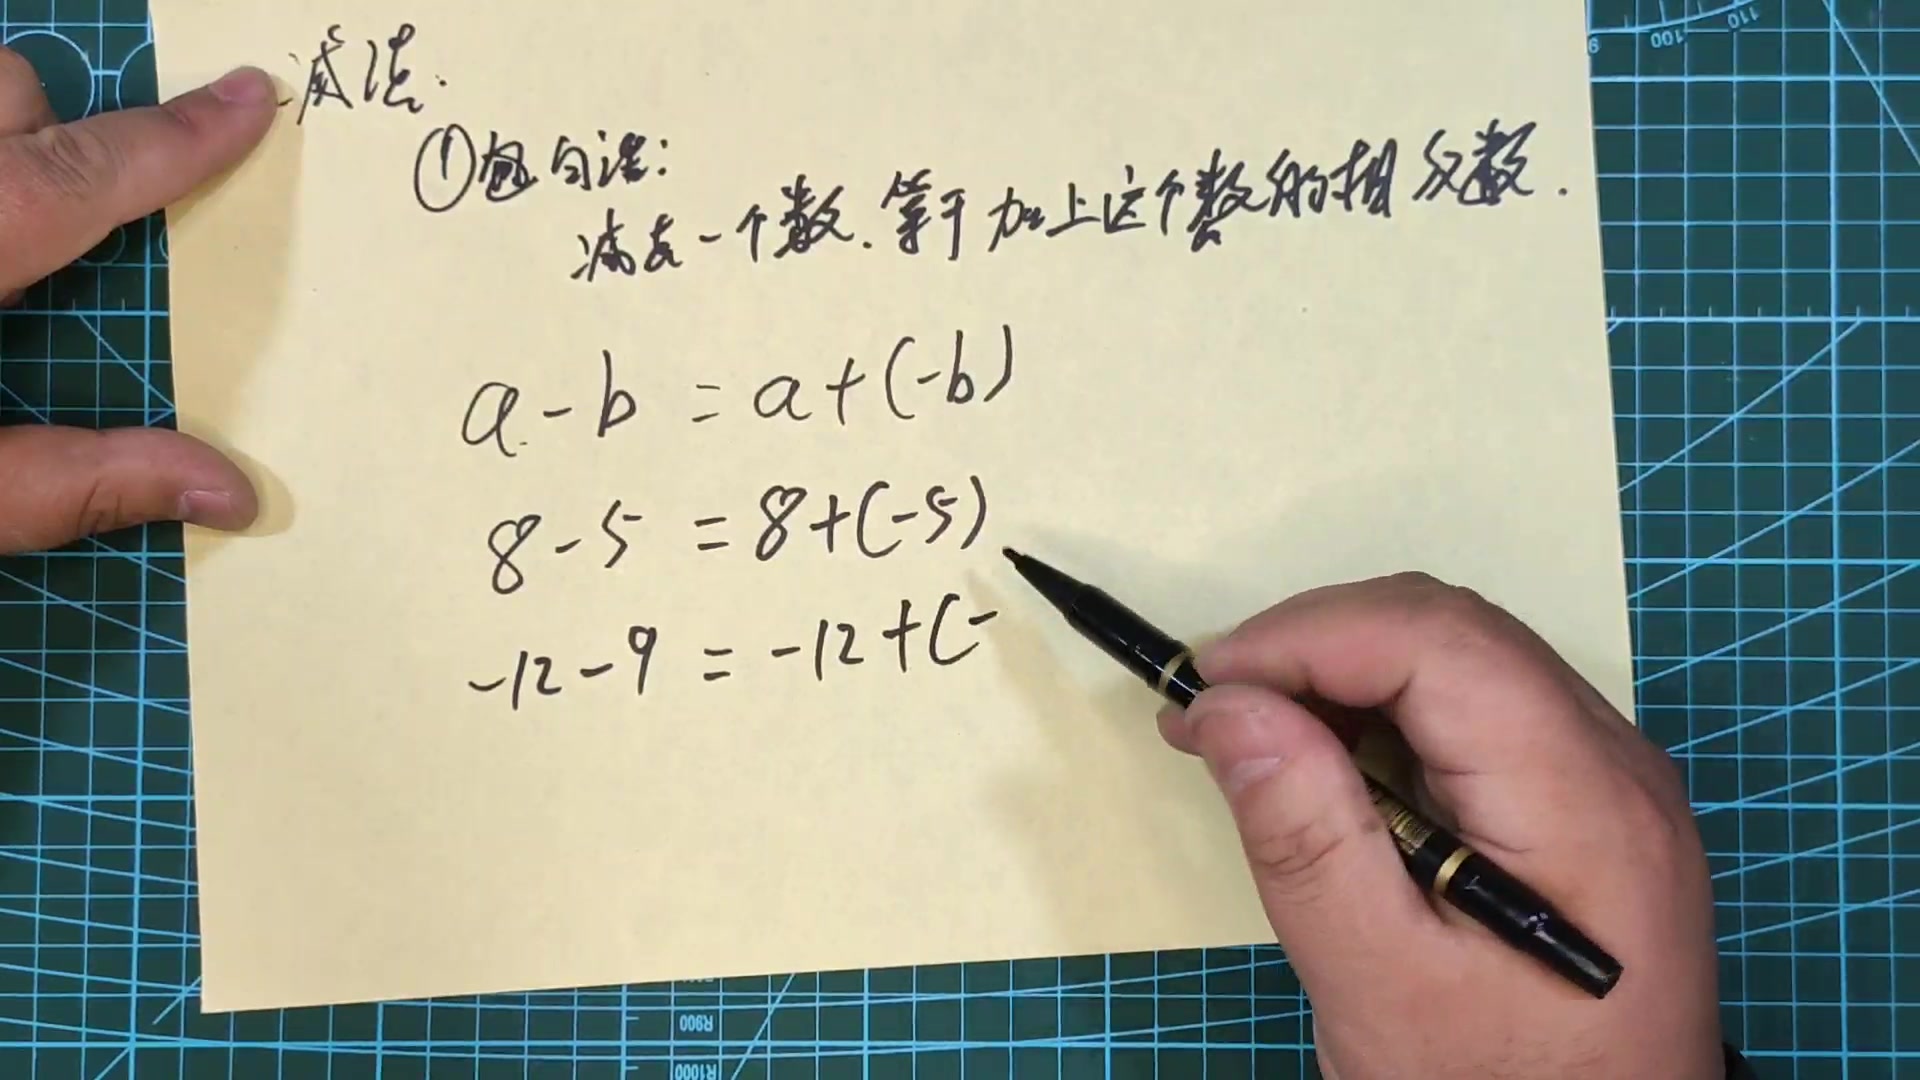 减法.
①包句话:
减去一个数.等于加上这个数的相反数.
a - b = a + (-b)
8 - 5 = 8 + (-5)
-12 - 9 = -12 + (-
110
100
9
R900
R1000